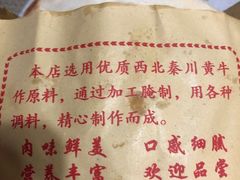 本店选用优质西北秦川黄牛
作原料，通过加工腌制，用各种
调料，精心制作而成。
肉味鲜美 口感细腻
营养丰富 欢迎品尝